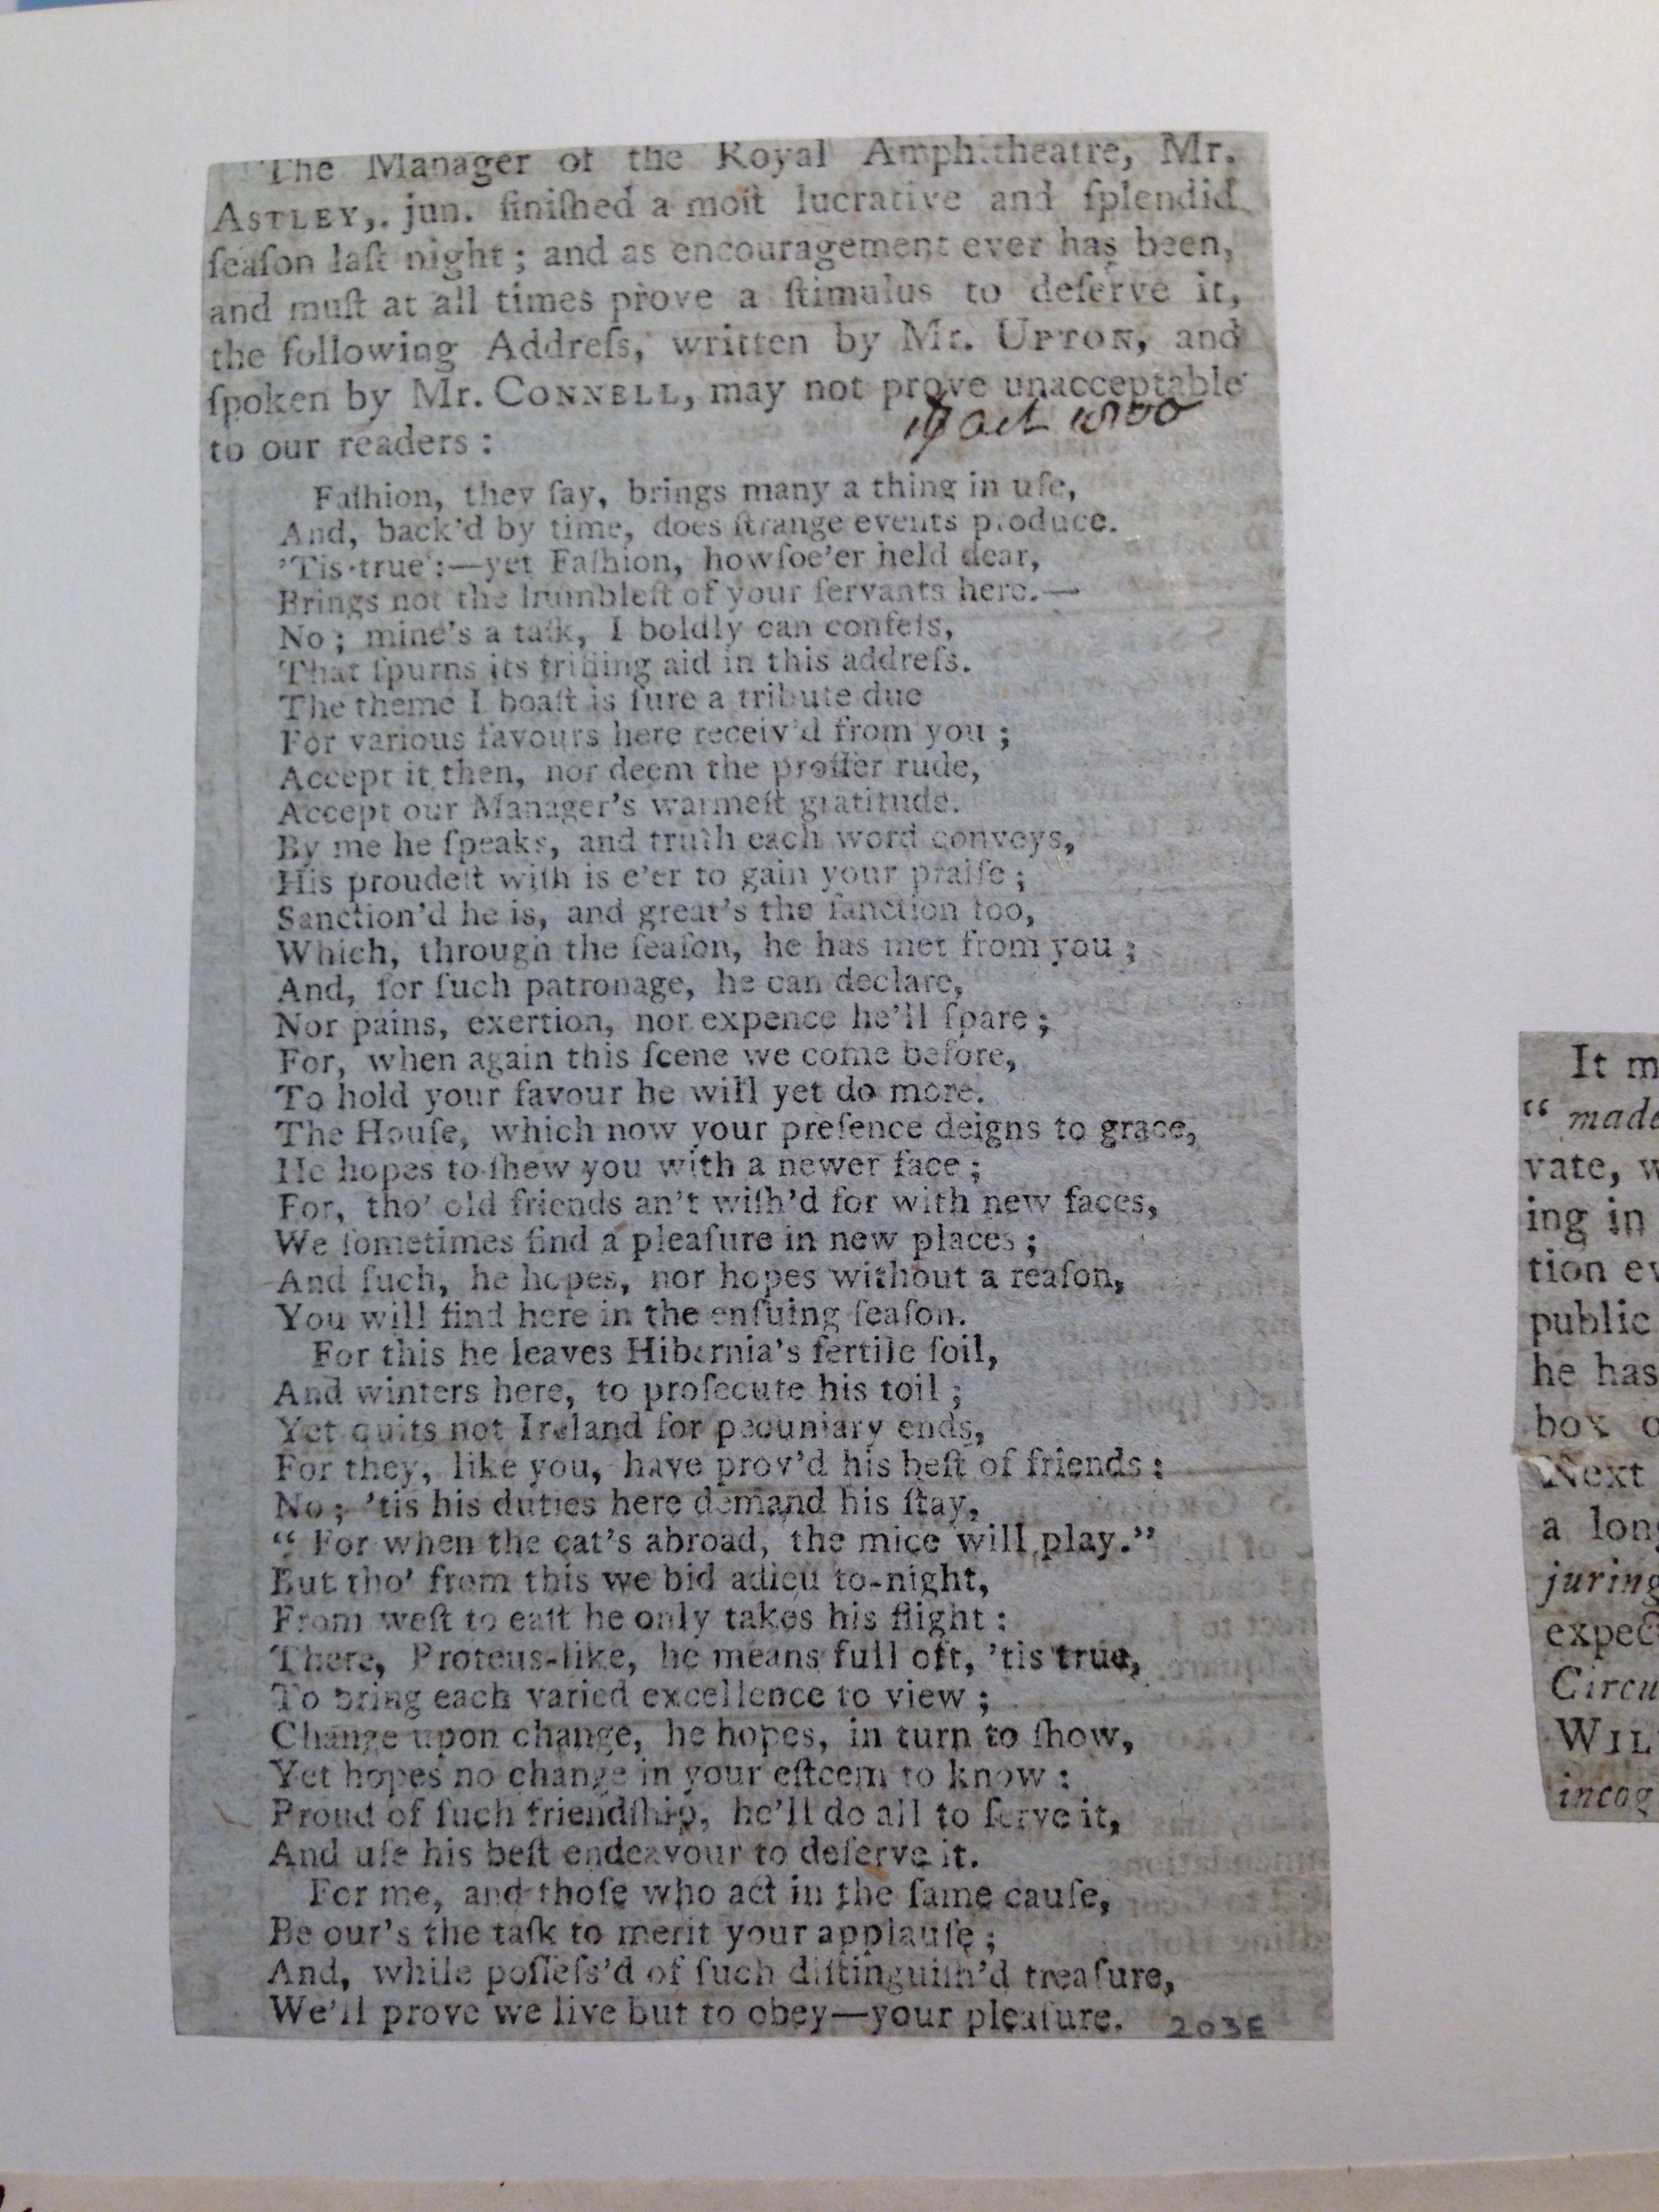 The Manager of the Royal Amphitheatre, Mr.
ASTLEY, jun. finiſhed a moſt lucrative and ſplendid
ſeaſon laſt night; and as encouragement ever has been,
and muſt at all times prove a ſtimulus to deſerve it,
the following Addreſs, written by Mr. UPTON, and
ſpoken by Mr. CONNELL, may not prove unacceptable
to our readers:
Oct 1800
Faſhion, they ſay, brings many a thing in uſe,
And, back'd by time, does ſtrange events produce.
'Tis true:—yet Faſhion, howſoe'er held dear,
Brings not the humbleſt of your ſervants here.—
No; mine's a taſk, I boldly can confeſs,
That ſpurns its trifling aid in this addreſs.
The theme I boaſt is ſure a tribute due
For various favours here receiv'd from you;
Accept it then, nor deem the proffer rude,
Accept our Manager's warmeſt gratitude.
By me he ſpeaks, and truth each word conveys,
His proudeſt wiſh is e'er to gain your praiſe;
Sanction'd he is, and great's the ſanction too,
Which, through the ſeaſon, he has met from you;
And, for ſuch patronage, he can declare,
Nor pains, exertion, nor expence he'll ſpare;
For, when again this ſcene we come before,
To hold your favour he will yet do more.
The Houſe, which now your preſence deigns to grace,
He hopes to ſhew you with a newer face;
For, tho' old friends an't wiſh'd for with new faces,
We ſometimes find a pleaſure in new places;
And ſuch, he hopes, nor hopes without a reaſon,
You will find here in the enſuing ſeaſon.
For this he leaves Hibernia's fertile ſoil,
And winters here, to proſecute his toil;
Yet quits not Ireland for pecuniary ends,
For they, like you, have prov'd his beſt of friends:
No; 'tis his duties here demand his ſtay,
"For when the cat's abroad, the mice will play."
But tho' from this we bid adieu to-night,
From weſt to eaſt he only takes his flight:
There, Proteus-like, he means full oft, 'tis true,
To bring each varied excellence to view;
Change upon change, he hopes, in turn to ſhow,
Yet hopes no change in your eſteem to know:
Proud of ſuch friendſhip, he'll do all to ſerve it,
And uſe his beſt endeavour to deſerve it.
For me, and thoſe who act in the ſame cauſe,
Be our's the taſk to merit your applauſe;
And, while poſſeſs'd of ſuch diſtinguiſh'd treaſure,
We'll prove we live but to obey—your pleaſure.
203E
It m
"made
vate, w
ing in
tion ev
public
he has
box o
Next
a long
juring
expec
Circu
WIL
incog